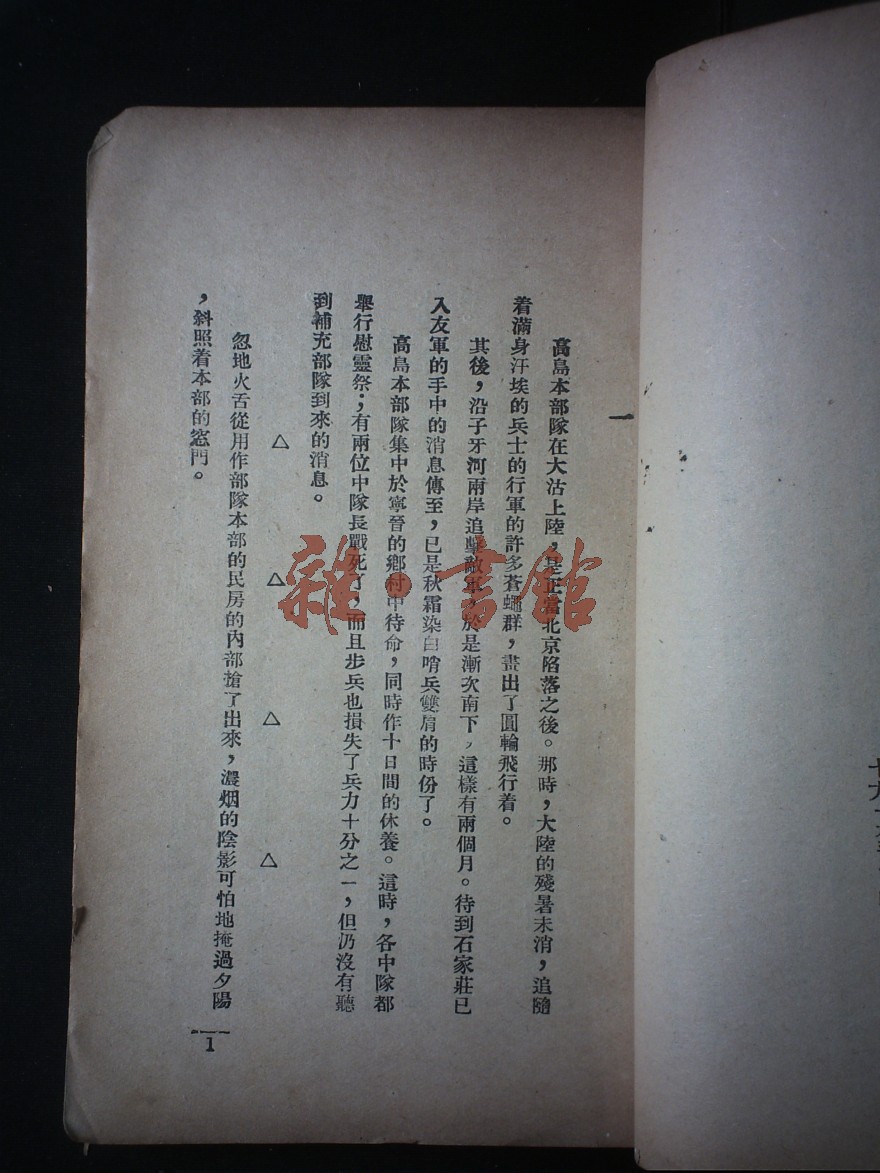 一
高島本部隊在大沽上陸，是正當北京陷落之後。那時，大陸的殘暑未消，追隨
着滿身汗埃的兵士的行軍的許多蒼蠅群，畫出了圓輪飛行着。
其後，沿子牙河兩岸追擊敵軍，於是漸次南下，這樣有兩個月。待到石家莊已
入友軍的手中的消息傳至，已是秋霜染白哨兵雙肩的時份了。
高島本部隊集中於寧晉的鄉村中待命，同時作十日間的休養。這時，各中隊都
舉行慰靈祭；有兩位中隊長戰死了，而且步兵也損失了兵力十分之一，但仍沒有聽
到補充部隊到來的消息。
△ △ △ △
忽地火舌從用作部隊本部的民房的內部搶了出來，濃烟的陰影可怕地掩過夕陽
，斜照着本部的窓門。
1
雜·書館